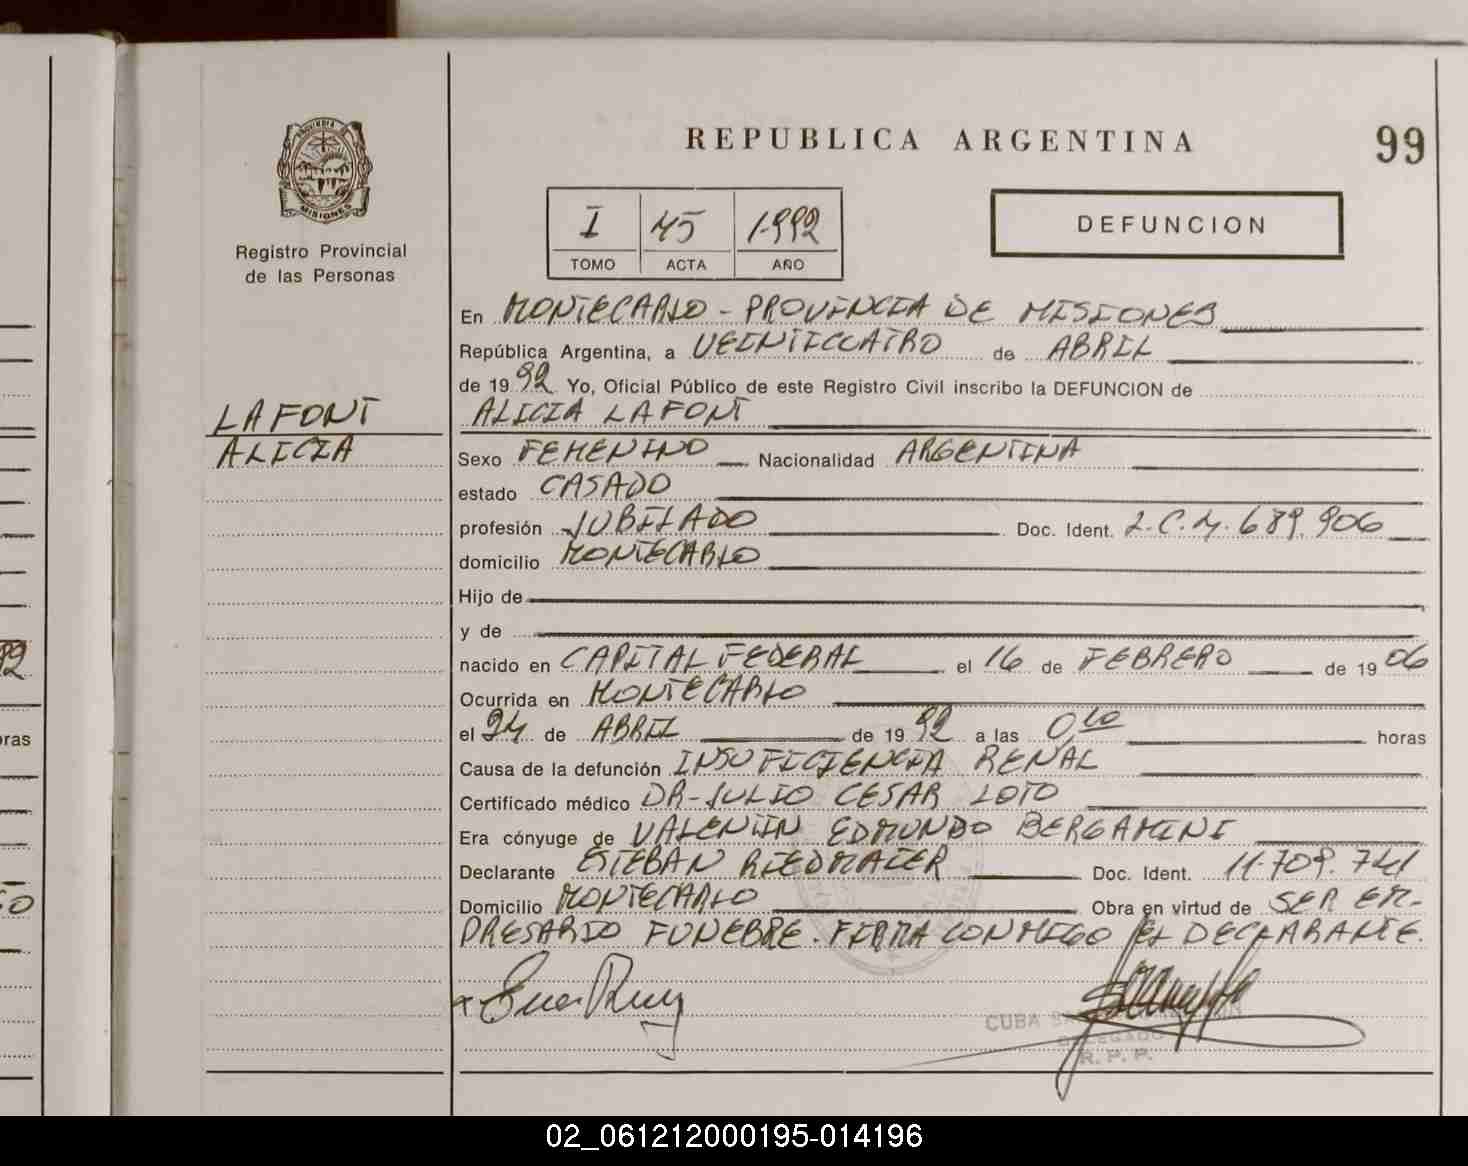 REPUBLICA ARGENTINA
99
PROVINCIA DE
MISIONES
Registro Provincial
de las Personas
I 45 1.992
TOMO ACTA AÑO
DEFUNCION
En MONTECARLO - PROVINCIA DE MISIONES
República Argentina, a VEINTICUATRO de ABRIL
de 1992 Yo, Oficial Público de este Registro Civil inscribo la DEFUNCION de
LAFONT
ALICIA
ALICIA LAFONT
Sexo FEMENINO Nacionalidad ARGENTINA
estado CASADO
profesión JUBILADO Doc. Ident. L.C. 4.689.906
domicilio MONTECARLO
Hijo de
y de
nacido en CAPITAL FEDERAL el 16 de FEBRERO de 1906
Ocurrida en MONTECARLO
el 24 de ABRIL de 1992 a las 0,10 horas
Causa de la defunción INSUFICIENCIA RENAL
Certificado médico DR-JULIO CESAR LOTO
Era cónyuge de VALENTIN EDMUNDO BERGAMINI
Declarante ESTEBAN RIEDMAIER Doc. Ident. 11.709.741
Domicilio MONTECARLO Obra en virtud de SER EM-
PRESARIO FUNEBRE. FIRMA CONMIGO EL DECLARANTE.
CUBA
DELEGADO
R. P. P.
92
oras
50
02_061212000195-014196